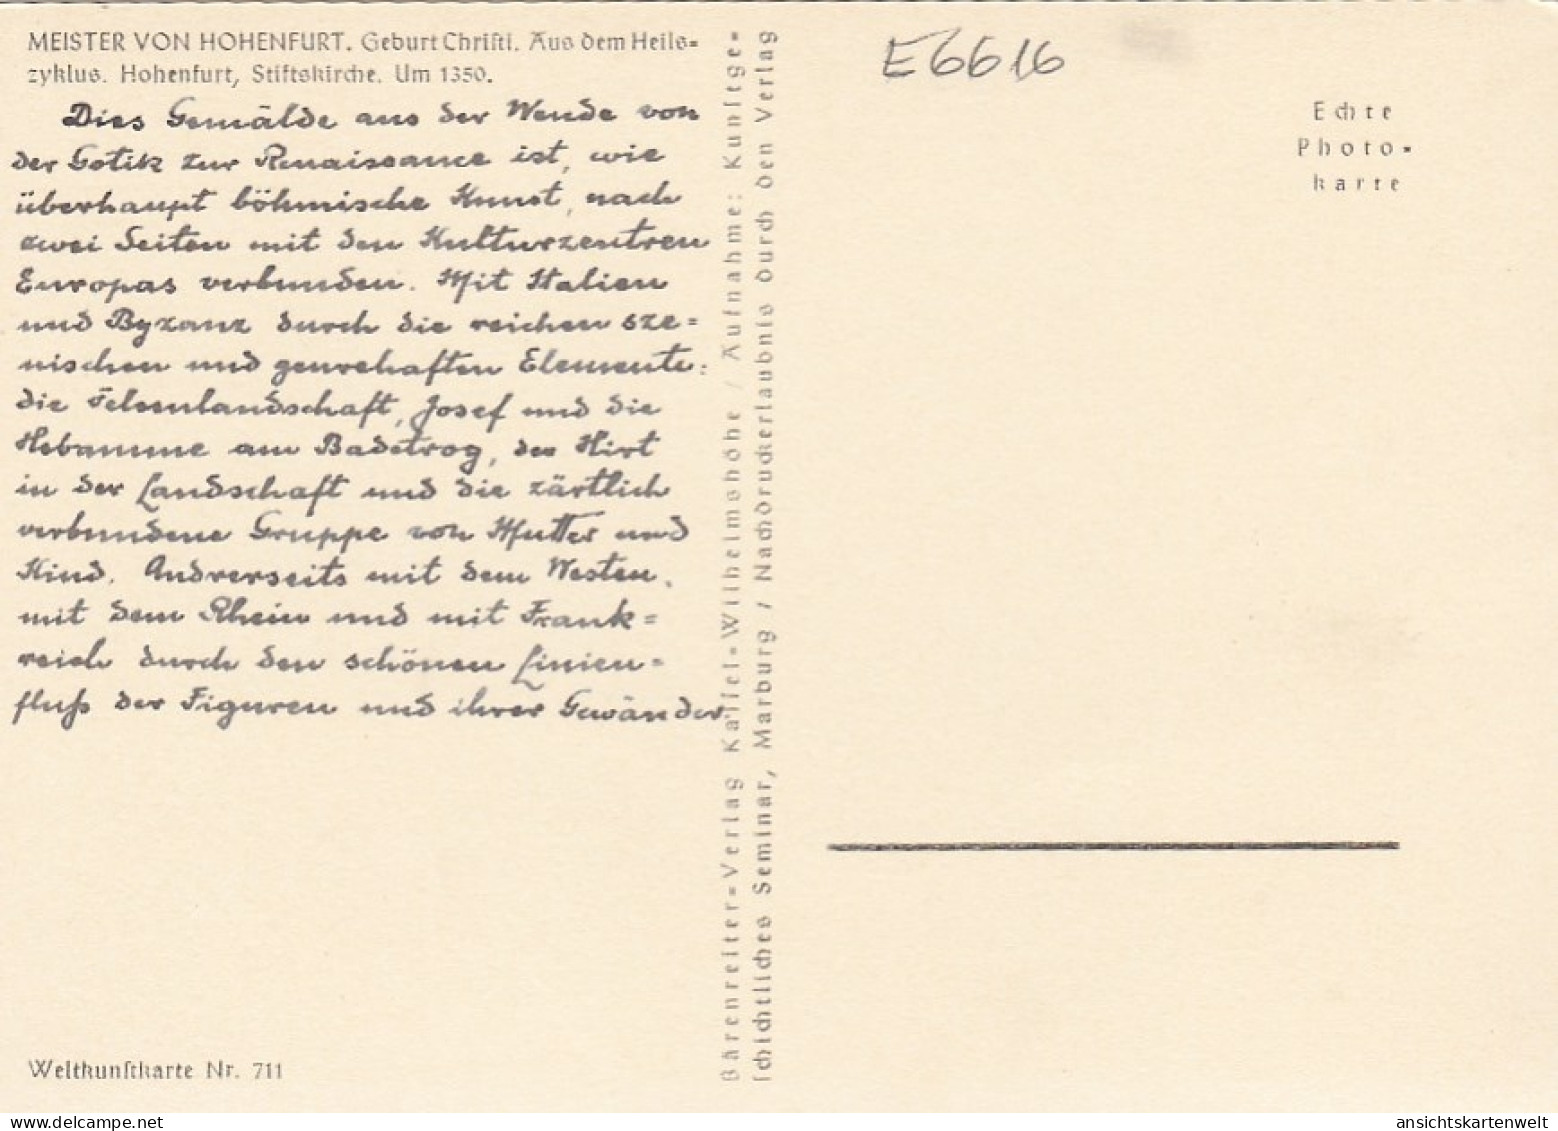 MEISTER VON HOHENFURT. Geburt Chriſti. Aus dem Heils=
zyklus. Hohenfurt, Stiftskirche. Um 1350.
Dies Gemälde aus der Wende von
der Gotik zur Renaissance ist, wie
überhaupt böhmische Kunst, nach
zwei Seiten mit den Kulturzentren
Europas verbunden. Mit Italien
und Byzanz durch die reichen sze=
nischen und genrehaften Elemente:
die Felsenlandschaft, Josef und die
Hebamme am Badetrog, der Hirt
in der Landschaft und die zärtlich
verbundene Gruppe von Mutter und
Kind. Andrerseits mit dem Westen,
mit dem Rhein und mit Frank=
reich durch den schönen Linien=
fluß der Figuren und ihrer Gewänder.
Weltkunſtkarte Nr. 711
Bärenreiter=Verlag Kaſſel=Wilhelmshöhe / Aufnahme: Kunſtge=
ſchichtliches Seminar, Marburg / Nachdruckerlaubnis durch den Verlag
E6616
Echte
Photo=
karte
delcampe.net
ansichtskartenwelt